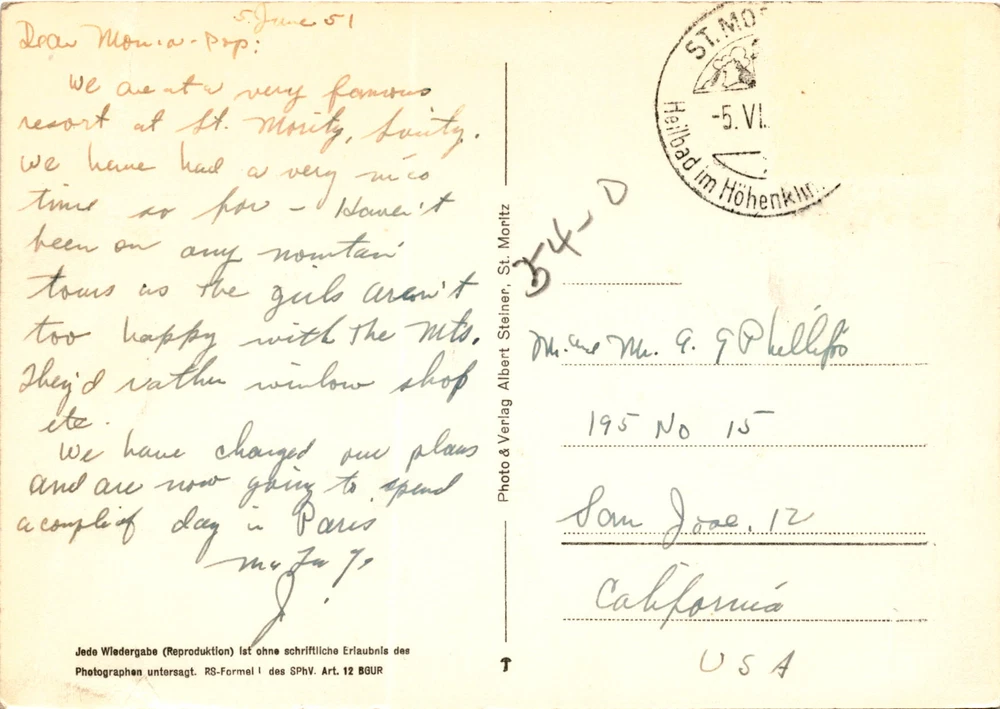 5 June 51
Dear Mom-n-Pop:
We are at a very famous
resort at St. Moritz, Switz.
We have had a very nice
time so far - Haven't
been on any mountain
tours as the girls aren't
too happy with the Mts.
They'd rather window shop
etc.
We have changed our plans
and are now going to spend
a couple of day in Paris
J.
Jede Wiedergabe (Reproduktion) ist ohne schriftliche Erlaubnis des
Photographen untersagt. RS-Formel I des SPhV. Art. 12 BGUR
Photo & Verlag Albert Steiner, St. Moritz
ST. MO
-5. VI.
Heilbad im Höhenkli
54-D
Mr. and Mr. G. G Phillips
195 No 15
San Jose, 12
California
USA